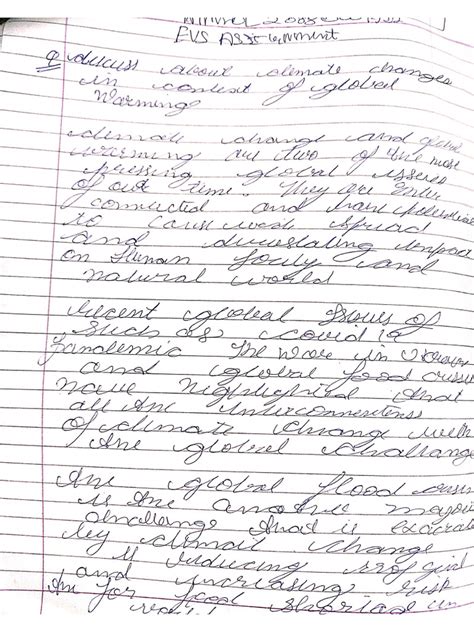 EVS Assignment
Q discuss about climate changes
in context of global
Warming
climate change and global
warming are two of the most
pressing global issues
of our time. They are inter
connected and have potential
to cause wide spread
and devastating impact
on Human and
natural world
recent global Issues of
Such as covid 19
Pandemic The war in
and global food crises
have highlighted that
all the interconnectness
of climate change with
the global challange
the global flood
is the another major
challange that is
by climate change
is reducing
and increasing risk
for food